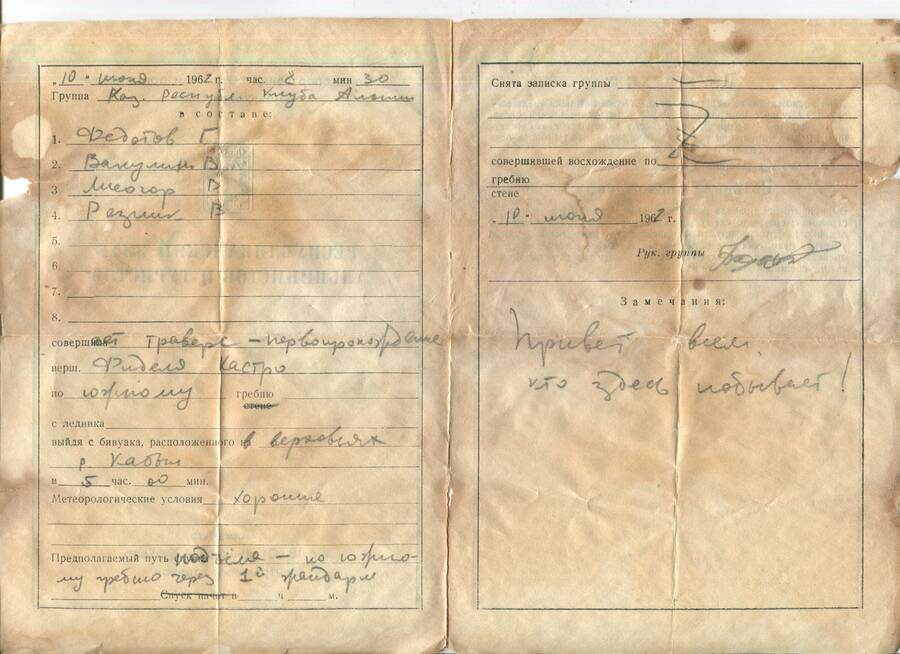 „10“ июня 1962 г. час. 8 мин 30
Группа Каз. Республ. Клуба Альпин
в составе:
1. Федотов Г
2. Вакулин В
3. Лисогор В
4. Резник В
5.
6.
7.
8.
совершает траверс – первопрохождение
верш. Фиделя Кастро
по южному гребню
стене
с ледника
выйдя с бивуака, расположенного в верховьях
р Кабыл
в 5 час. 00 мин.
Метеорологические условия хорошие
Предполагаемый путь подъема – по южно-
му гребню через 1й жандарм
Спуск начат в ч м.
Снята записка группы
совершившей восхождение по
гребню
стене
„10“ июня 1962 г.
Рук. группы
Замечания:
Привет всем
кто здесь побывает!